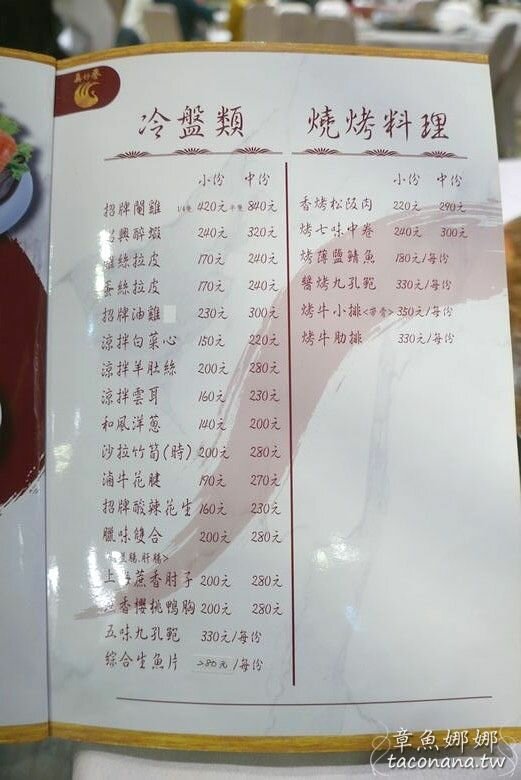 真好彩
冷盤類
小份 中份
招牌閹雞 1/4隻 420元 半隻 840元
紹興醉蝦 240元 320元
雞絲拉皮 170元 240元
蛋絲拉皮 170元 240元
招牌油雞 230元 300元
涼拌白菜心 150元 220元
涼拌羊肚絲 200元 280元
涼拌雲耳 160元 230元
和風洋蔥 140元 200元
沙拉竹筍(時) 200元 280元
滷牛花腱 190元 270元
招牌酸辣花生 160元 230元
臘味雙合 200元 280元
腸.肝腸>
上海蔴香肘子 200元 280元
香櫻桃鴨胸 200元 280元
五味九孔鮑 330元/每份
綜合生魚片 280元/每份
燒烤料理
小份 中份
香烤松阪肉 220元 290元
烤七味中卷 240元 300元
烤薄鹽鯖魚 180元/每份
醬烤九孔鮑 330元/每份
烤牛小排<帶骨> 350元/每份
烤牛肋排 330元/每份
章魚娜娜
taconana.tw